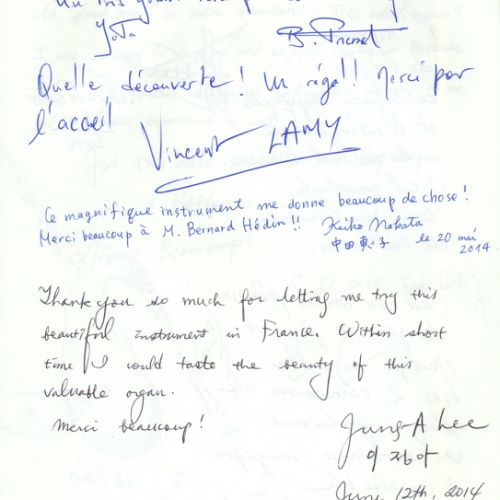 Un très grand
Yota B. Prunet
Quelle découverte ! Un régal! Merci por
l'accueil
Vincent LAMY
Ce magnifique instrument me donne beaucoup de chose !
Merci beaucoup à M. Bernard Hédin !! Keiko Nakata
中田恵子 le 20 mai
2014
Thank you so much for letting me try this
beautiful instrument in France. Within short
time I could taste the beauty of this
valuable organ.
Merci beaucoup!
Jung-A Lee
이정아
June, 12th, 2014